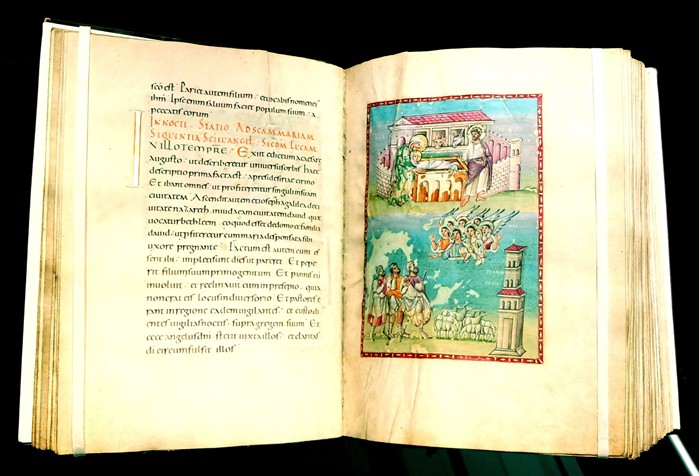 sc̄o est · Pariet autem filium · et vocabis nomen eius
ih̄m · Ipse enim saluum faciet populum suum · a
peccatis eorum
IN NOCTE · STATIO AD SC̄AM MARIAM
SEQUENTIA SC̄I EVANGE SECDM LUCAM
IN ILLO TEMPRE · Exiit edictum a caesare
augusto · ut describeretur uniuersus orbis · haec
descriptio prima facta est · a preside siriae cirino
Et ibant omnes · ut profiterentur singuli in suam
ciuitatem · Ascendit autem et ioseph a galilea de ci
uitate nazareth · in iudaeam ciuitatem dauid · quae
uocatur bethleem · eo quod esset de domo et familia
dauid · ut profiteretur cum maria desponsata sibi
uxore pregnante · Factum est autem cum es
sent ibi · impleti sunt dies ut pareret · Et pepe
rit filium suum primogenitum · Et pannis eū
inuoluit · et reclinauit eum in presepio · quia
non erat eis locus in diuersorio · Et pastores e
rant in regione eadem uigilantes · et custodi
entes uigilias noctis · supra gregem suum · Et
ecce angelus dn̄i stetit iuxta illos · et claritas
dī circumfulsit illos